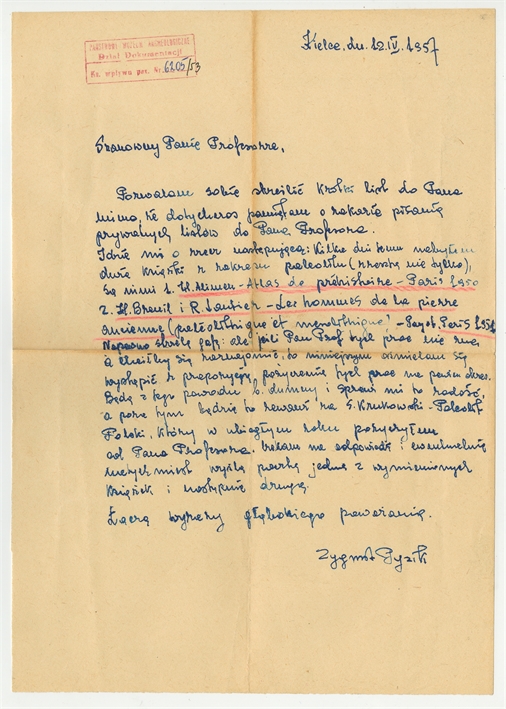 PAŃSTWOWE MUZEUM ARCHEOLOGICZNE
Dział Dokumentacji
Ks. wpływu poz. Nr. 6205/53
Kielce, dn. 12.IV.1957
Szanowny Panie Profesorze,
Pozwalam sobie skreślić krótki list do Pana
mimo, że dotychczas pamiętam o zakazie pisania
prywatnych listów do Pana Profesora.
Idzie mi o rzecz następującą: Kilka dni temu nabyłem
dwie książki z zakresu paleolitu (zresztą nie tylko),
są nimi 1. H. Alimen - Atlas de préhistoire - Paris 1950
2. H. Breuil i R. Lantier - Les hommes de la pierre
ancienne (paléolithique et mesolithique) - Payot, Paris 1951.
Napewno strzelę gafę, ale jeśli Pan Prof. tych prac nie zna,
a chciałby się zaznajomić, to niniejszym ośmielam się
wystąpić z propozycją pożyczenia tych prac na pewien okres.
Będę z tego powodu b. dumny i sprawi mi to radość,
a poza tym będzie to rewanż za S. Krukowski - Paleolit
Polski, który w ubiegłym roku pożyczyłem
od Pana Profesora. Czekam na odpowiedź i ewentualnie
natychmiast wyślę paczką jedną z wymienionych
książek i następnie drugą.
Łączę wyrazy głębokiego poważania.
Zygmunt Pyzik